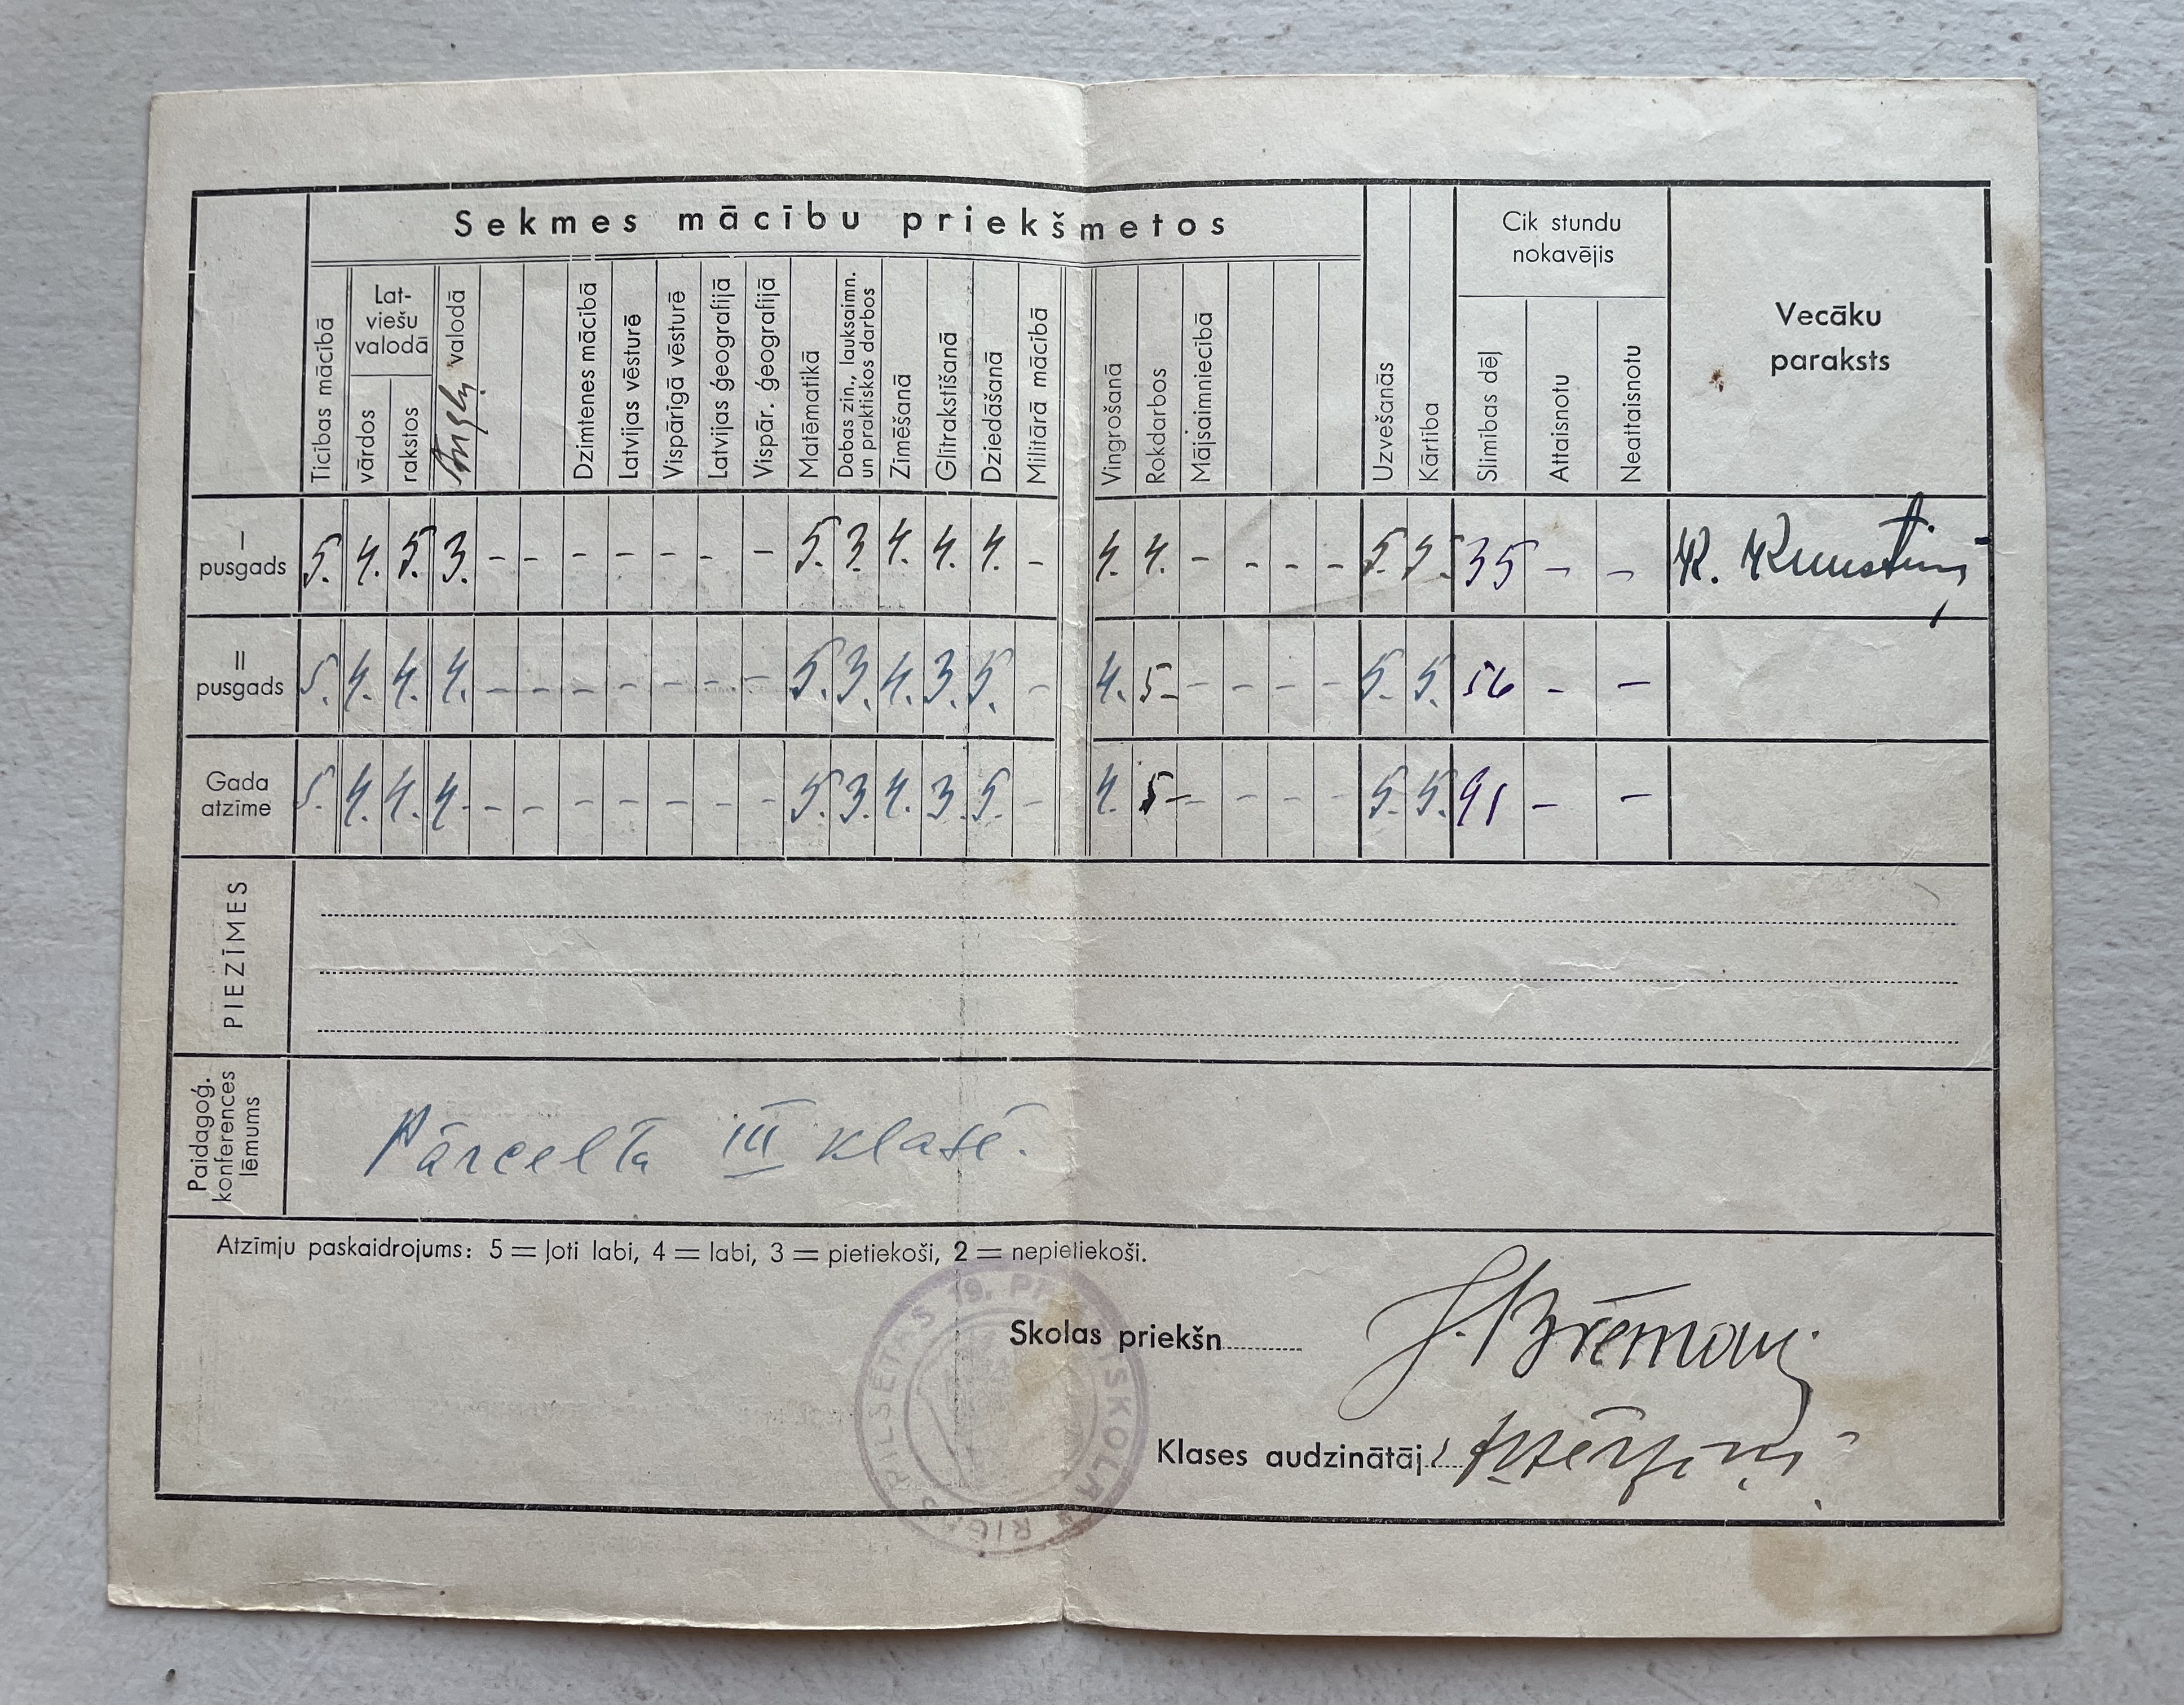 Sekmes mācību priekšmetos
Ticības mācībā
Lat-
viešu
valodā
vārdos
rakstos
Angļu valodā
Dzimtenes mācībā
Latvijas vēsturē
Vispārīgā vēsturē
Latvijas ģeografijā
Vispār. ģeografijā
Matēmatikā
Dabas zin., lauksaimn.
un praktiskos darbos
Zīmēšanā
Glītrakstīšanā
Dziedāšanā
Militārā mācībā
Vingrošanā
Rokdarbos
Mājsaimniecībā
Uzvešanās
Kārtība
Cik stundu
nokavējis
Slimības dēļ
Attaisnotu
Neattaisnotu
Vecāku
paraksts
I
pusgads
5. 4. 5. 3. - - - - - - - 5. 3. 4. 4. 4. - 4. 4. - - - - 5. 5. 35 - - K.
II
pusgads
5. 4. 4. 4. - - - - - - - 5. 3. 4. 3. 5. - 4. 5 - - - - 5. 5. 56 - -
Gada
atzīme
5. 4. 4. 4. - - - - - - - 5. 3. 4. 3. 5. - 4. 5 - - - - 5. 5. 91 - -
PIEZĪMES
Paidagoģ.
konferences
lēmums
Pārcelta III klasē.
Atzīmju paskaidrojums: 5 = ļoti labi, 4 = labi, 3 = pietiekoši, 2 = nepietiekoši.
Skolas priekšn.
Klases audzinātāj